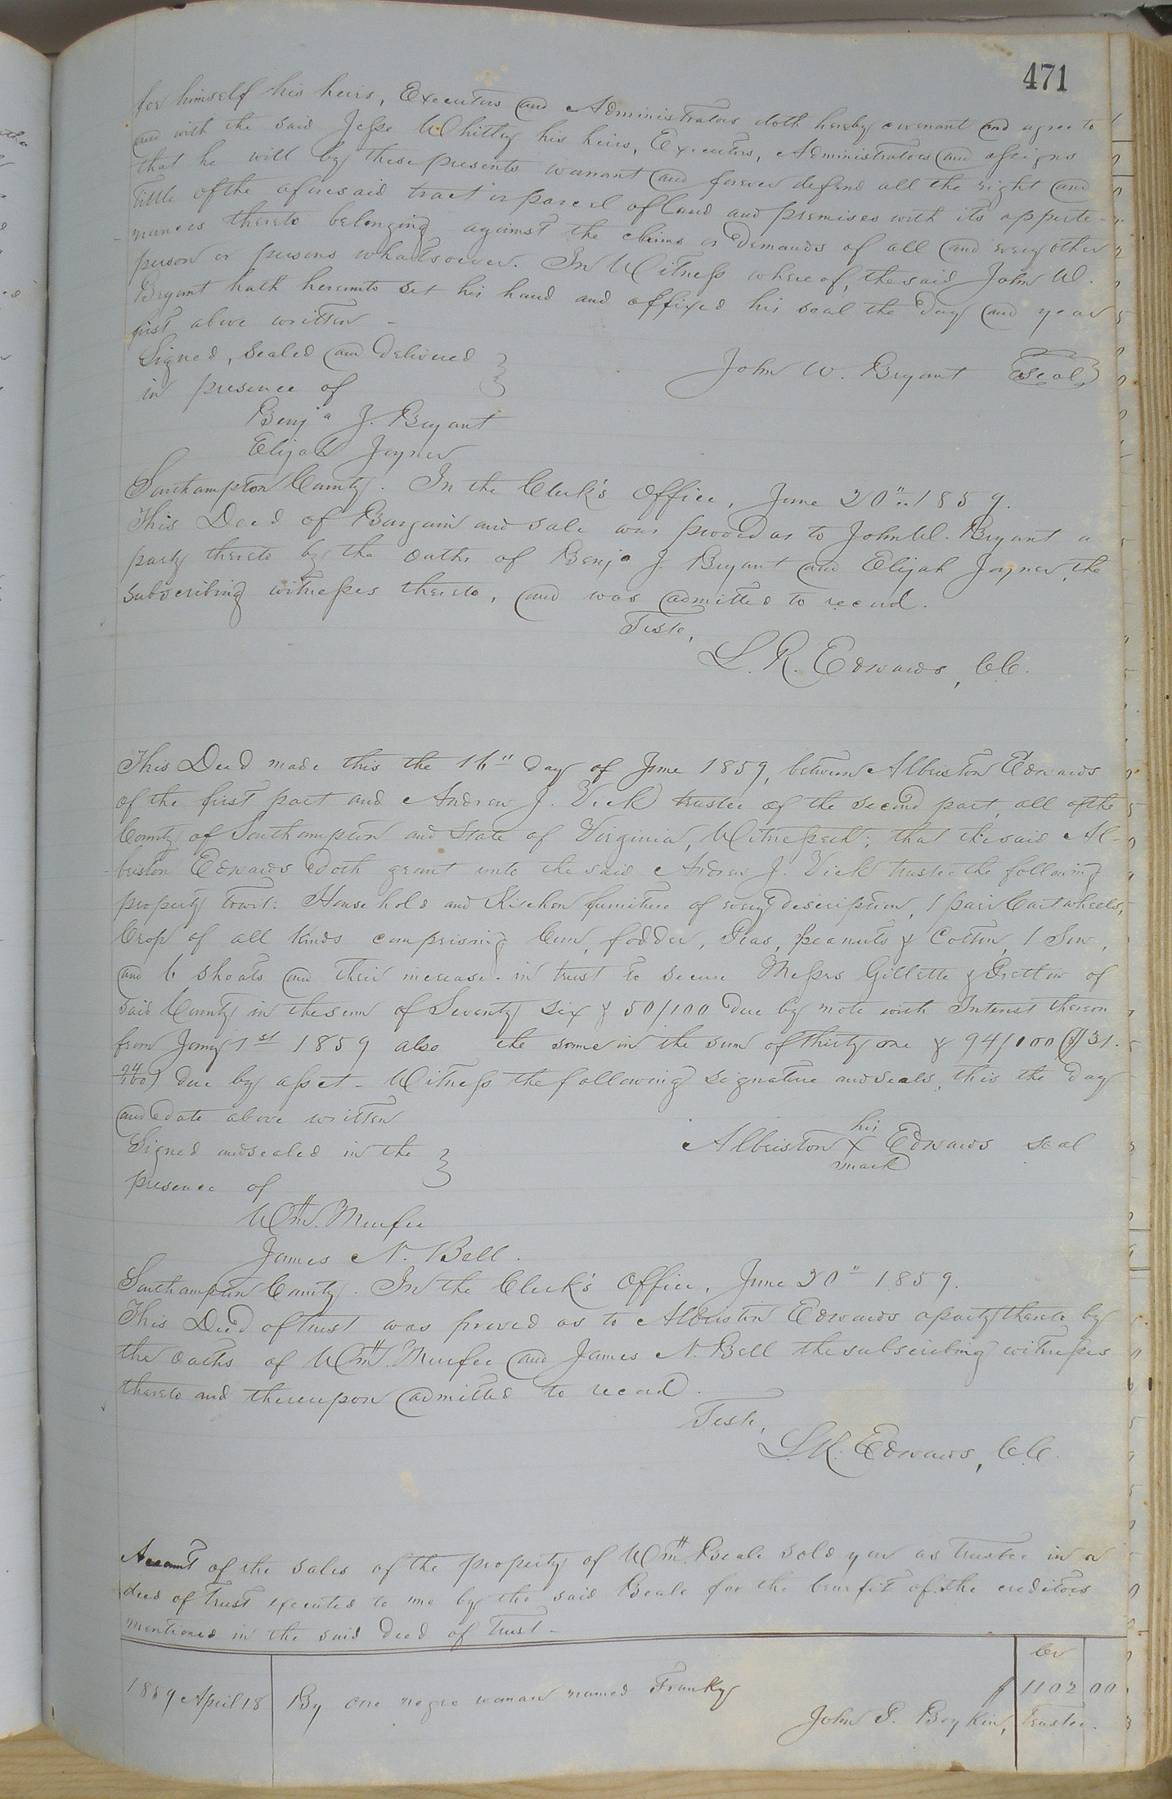 471
for himself his heirs, Executors and Administrators doth hereby covenant and agree to
and with the said Jesse Whitley his heirs, Executors, Administrators and assigns
that he will by these presents warrant and forever defend all the right and
title of the aforesaid tract or parcel of land and premises with its apperte-
nances thereto belonging against the claims or demands of all and every other
person or persons whatsoever. In Witness whereof, the said John W.
Bryant hath hereunto set his hand and affixed his seal the day and year
first above written -
Signed, Sealed and delivered
in presence of
John W. Bryant Seal
Benja J. Bryant
Elijah Joyner
Southampton County. In the Clerk's Office, June 20" 1859.
This Deed of Bargain and sale was proved as to John W. Bryant a
party thereto by the oaths of Benja J. Bryant and Elijah Joyner, the
subscribing witnesses thereto, and was admitted to record.
Teste,
L. R. Edwards, C.C.
This Deed made this the 16" day of June 1859, between Albriston Edwards
of the first part and Andrew J. Vick trustee of the second part, all of the
County of Southampton and State of Virginia, Witnesseth; that the said Al-
briston Edwards doth grant unto the said Andrew J. Vick trustee the following
property towit: Household and Kitchen furniture of every description, 1 pair Cart wheels,
Crop of all kinds comprising Corn, fodder, Peas, peanuts & Cotton, 1 Sow,
and 6 shoats and their increase. in trust to secure Messrs Gillette & of
said County in the sum of Seventy six & 50/100 due by note with Interest thereon
from Jany 1st 1859 also the same in the sum of thirty one & 94/100 ($31.
94/100) due by asset - Witness the following signature and seals, this the day
and date above written
Signed and sealed in the
presence of
his
Albriston X Edwards seal
mark
Wm. Murfee
James N. Bell.
Southampton County. In the Clerk's Office, June 20" 1859.
This Deed of trust was proved as to Albriston Edwards a party thereto by
the oaths of Wm. Murfee and James N. Bell the subscribing witnesses
thereto and thereupon admitted to record.
Teste,
L. R. Edwards, C.C.
Account of the sales of the property of Wm Beale sold as trustee in a
deed of trust executed to me by the said Beale for the benefit of the creditors
mentioned in the said deed of trust -
Cr
1859 April 18 By one negro woman named Franky $ 1102 00
John G. Boykin, Trustee.